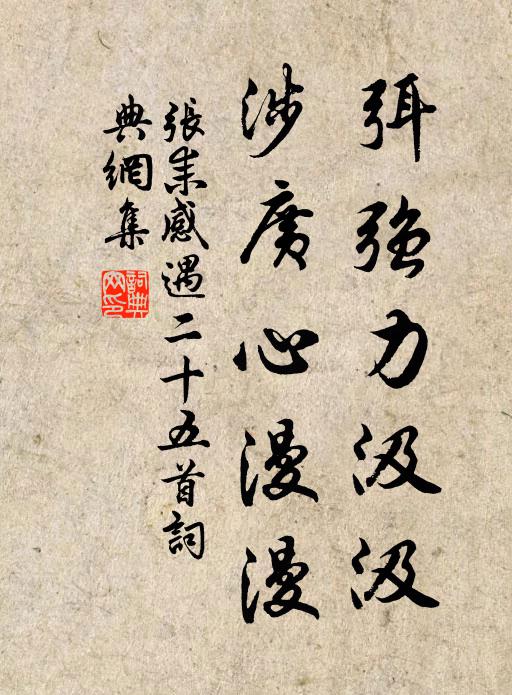 弭強力汲汲
涉廣心漫漫
張耒感遇二十五首詞
典網集
詞典網印